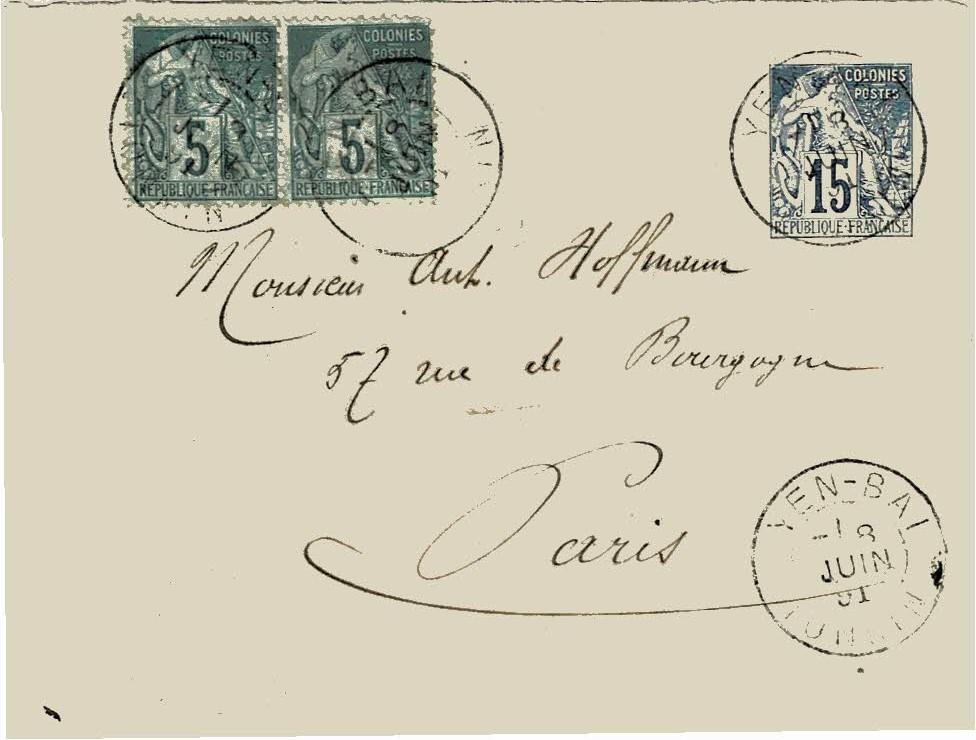 COLONIES
POSTES
5
RÉPUBLIQUE-FRANÇAISE
COLONIES
POSTES
5
RÉPUBLIQUE-FRANÇAISE
COLONIES
POSTES
15
RÉPUBLIQUE-FRANÇAISE
Monsieur Ant. Hoffmann
57 rue de Bourgogne
Paris
YEN-BAI
8
JUIN
91
TONKIN